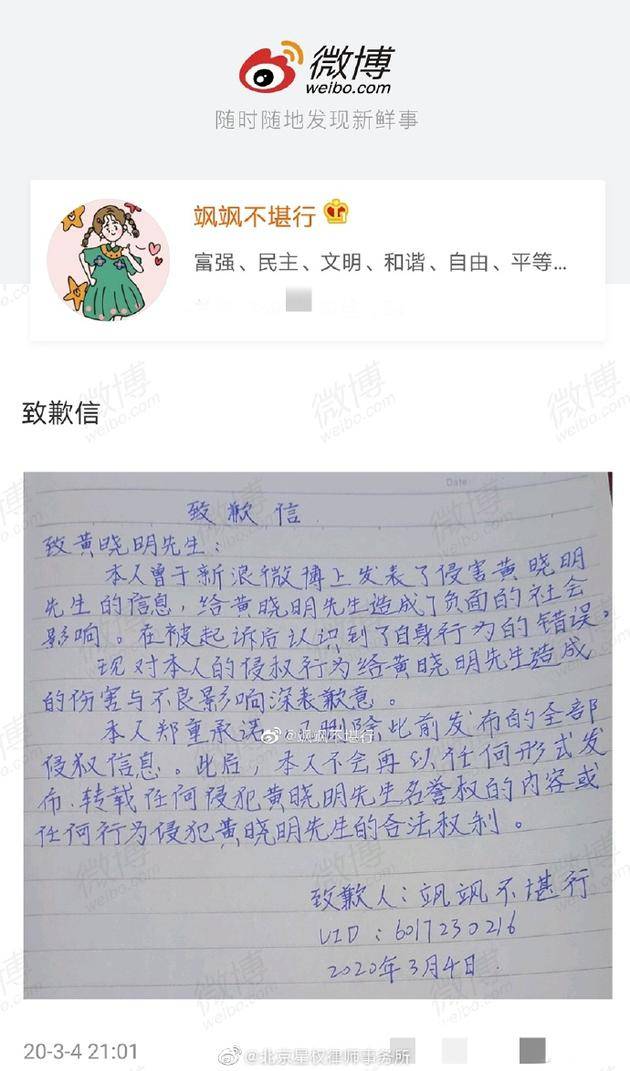 微博
weibo.com
随时随地发现新鲜事
飒飒不堪行
富强、民主、文明、和谐、自由、平等...
致歉信
Date
致歉信
致黄晓明先生：
本人曾于新浪微博上发表了侵害黄晓明
先生的信息，给黄晓明先生造成了负面的社会
影响。在被起诉后认识到了自身行为的错误。
现对本人的侵权行为给黄晓明先生造成
的伤害与不良影响深表歉意。
本人郑重承诺，已删除此前发布的全部
@飒飒不堪行
侵权信息。此后，本人不会再以任何形式发
布、转载任何侵犯黄晓明先生名誉权的内容或
任何行为侵犯黄晓明先生的合法权利。
致歉人：飒飒不堪行
UID：6017230216
2020年3月4日.
20-3-4 21:01
@北京星权律师事务所